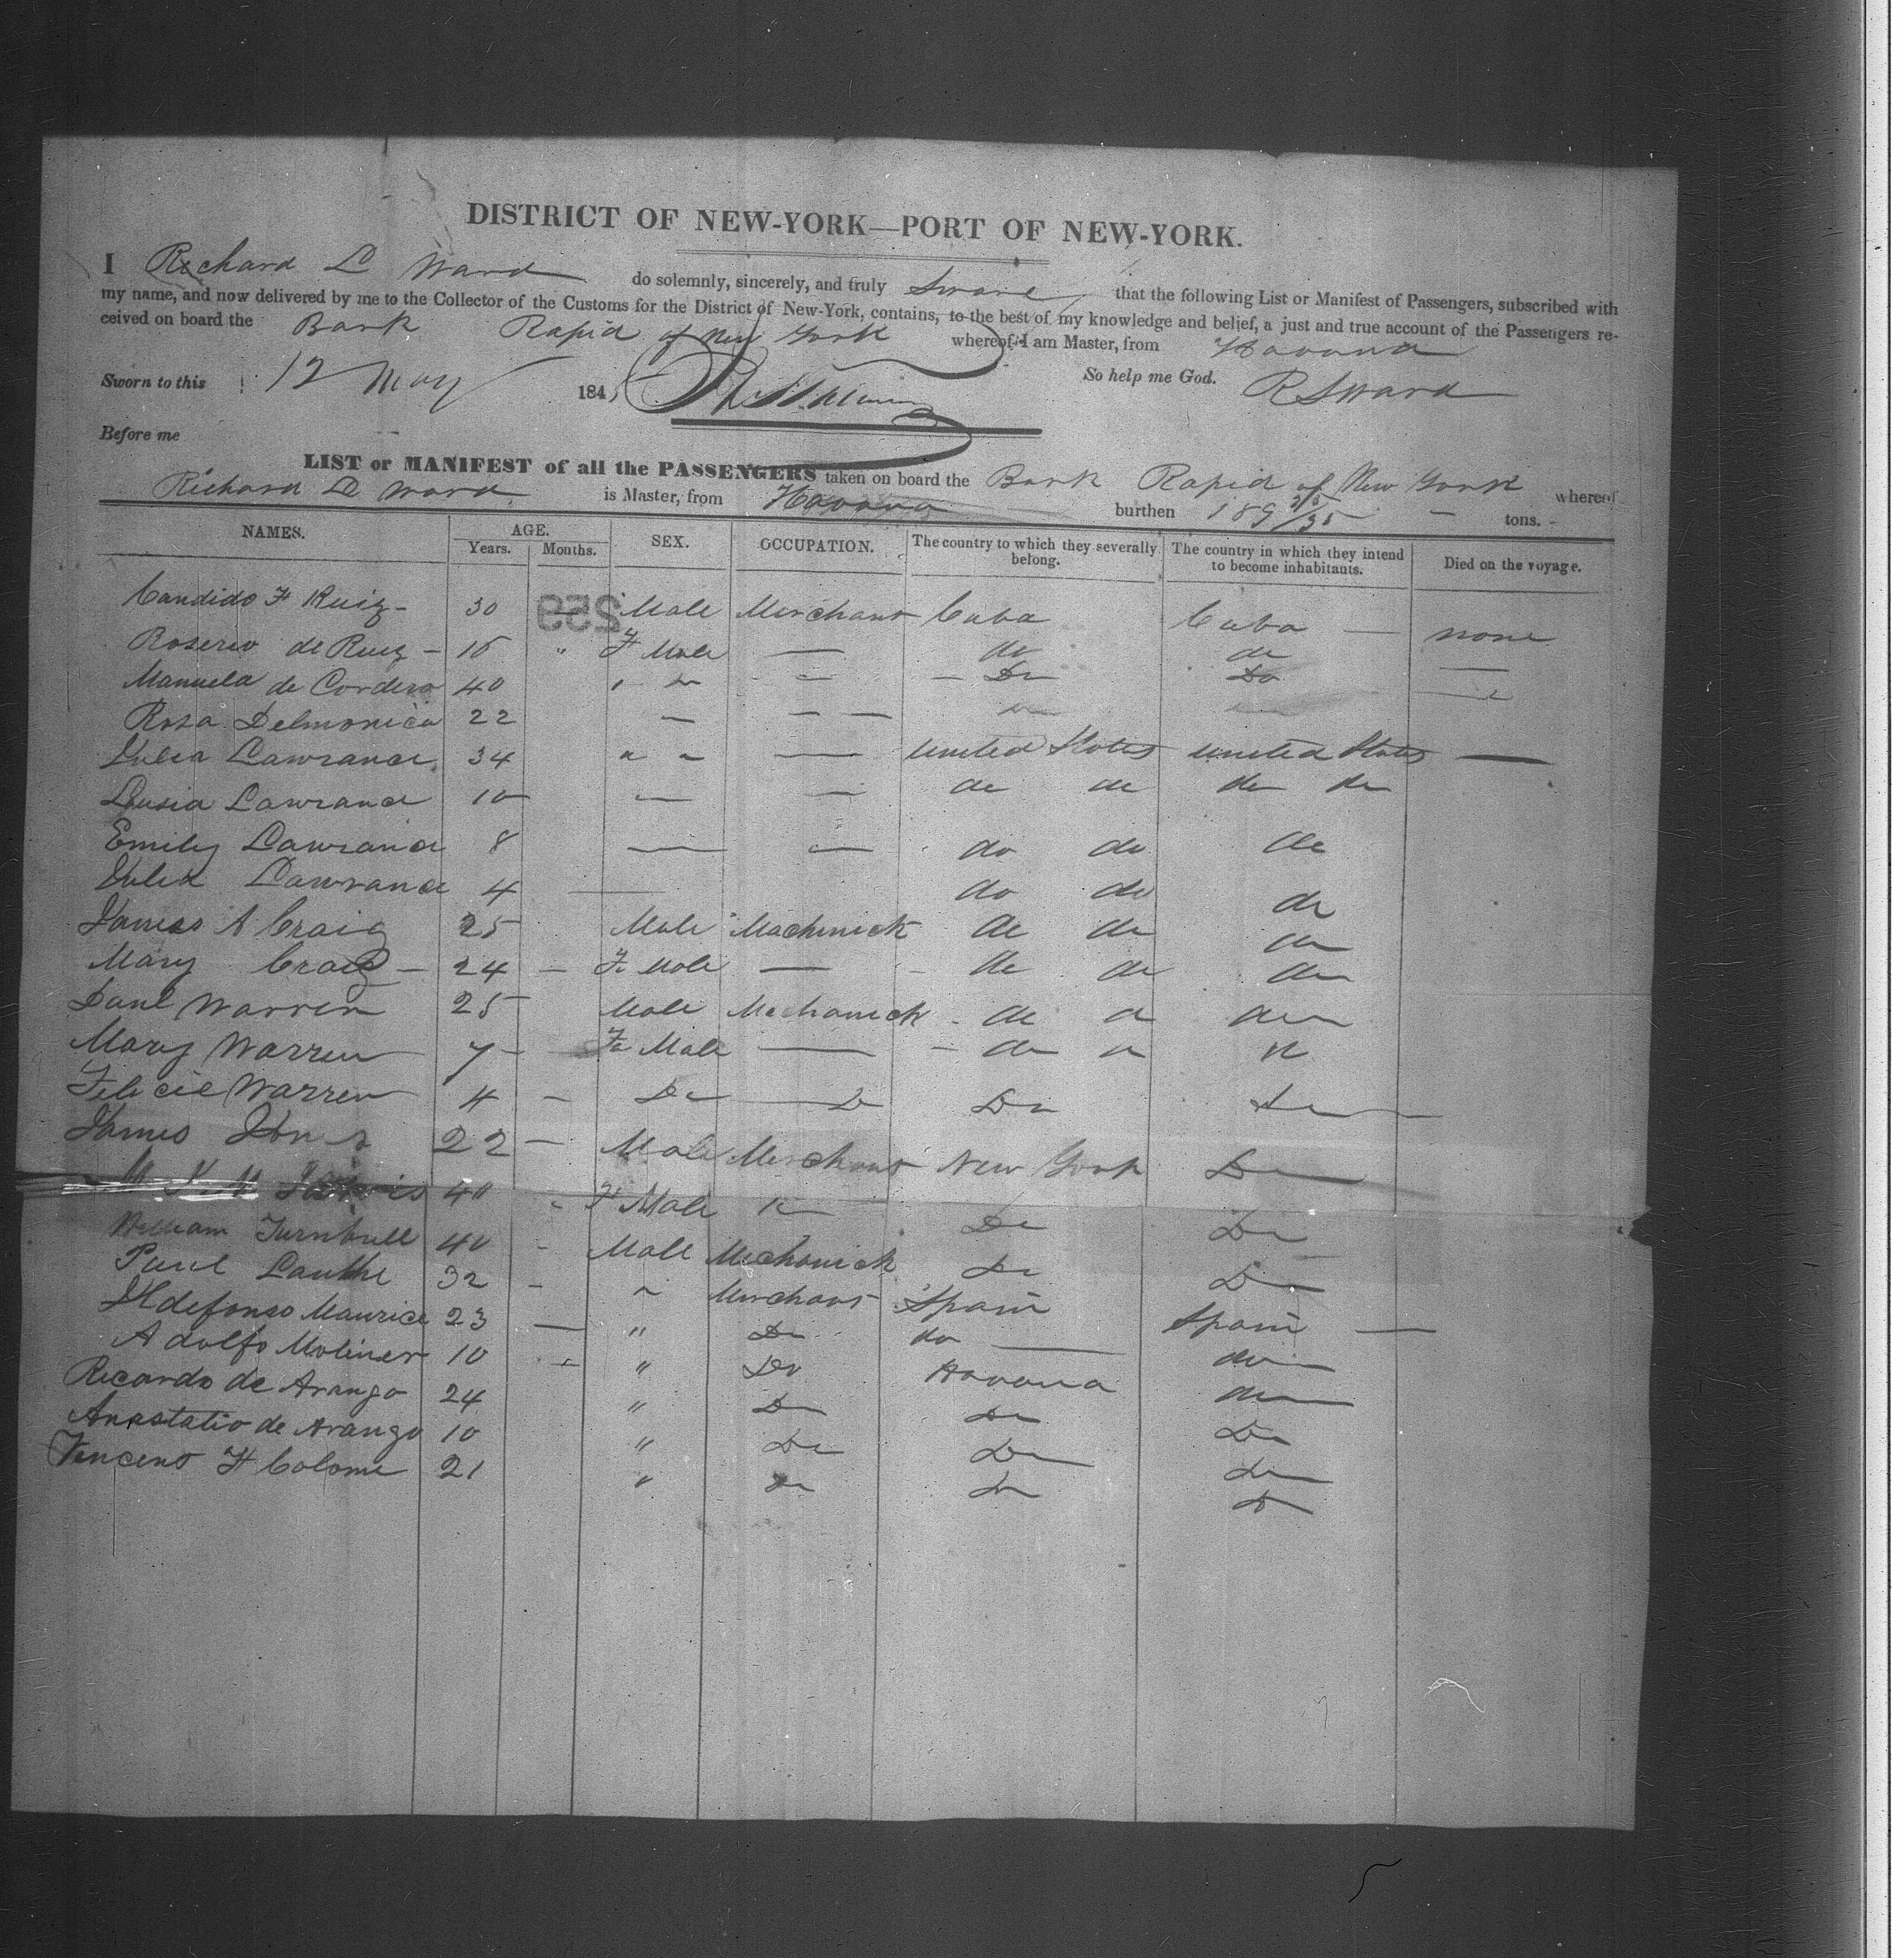 DISTRICT OF NEW-YORK—PORT OF NEW-YORK.
I Richard L Ward do solemnly, sincerely, and truly Sware that the following List or Manifest of Passengers, subscribed with
my name, and now delivered by me to the Collector of the Customs for the District of New-York, contains, to the best of my knowledge and belief, a just and true account of the Passengers re-
ceived on board the Bark Rapid of New York whereof I am Master, from Havana
Sworn to this 12 May 184 So help me God. R L Ward
Before me
LIST or MANIFEST of all the PASSENGERS taken on board the Bark Rapid of New York whereof
Richard L Ward is Master, from Havana burthen 189 /95 tons.
NAMES. AGE. SEX. OCCUPATION. The country to which they severally belong. The country in which they intend to become inhabitants. Died on the voyage.
Years. Months.
Candido F Ruiz - 30 Male Merchant Cuba Cuba — none
259
Roserio de Ruiz - 16 " F Male — do do —
Manuela de Cordero 40 " Do — Do Do —
Rosa Delmonico 22 — — —
Julia Lawrance 34 " " — United States United States —
Lusia Lawrance 10 — — do do do do
Emily Lawrance 8 — — do do do
Julia Lawrance 4 — do do do
James A Craig 25 Male Machinick do do do
Mary Craig - 24 — Fe Male — do do do
Danl Warren 25 Male Mechanick do do do
Mary Warren 7 - Fe Male — do do do
Felicie Warren 4 — Do — Do Do Do
James 22 — Male Merchant New York Do
40 F Male Do Do
William Turnbull 40 - Male Mechanick Do Do
Paul 32 - " Merchant Spain Spain —
Ildefonso Maurice 23 — " Do do — do
Adolfo Moliner 10 " Do Havana do
Ricardo de Arango 24 " Do Do Do
Anastatio de Arango 10 " Do Do Do
Vinceno F Colome 21 " Do Do Do